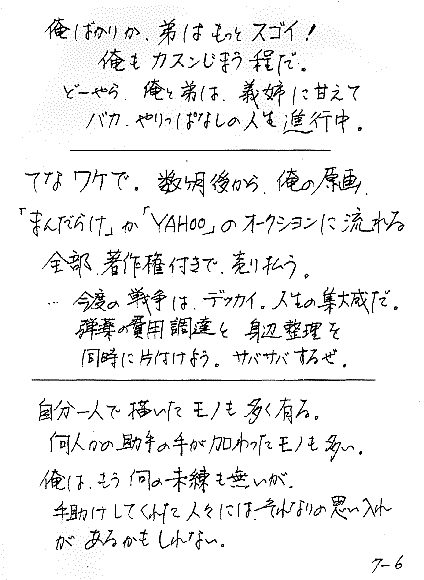 俺ばかりか、弟はもっとスゴイ!
俺もカスンじまう程だ。
どーやら、俺と弟は、義姉に甘えて
バカ、やりっぱなしの人生進行中。
てなワケで。数ヶ月後から、俺の原画、
「まんだらけ」か「YAHOO」のオークションに流れる
全部、著作権付きで、売り払う。
… 今度の戦争は、デッカイ。人生の集大成だ。
弾薬の費用調達と身辺整理を
同時に片付けよう。サバサバするぜ。
自分一人で描いたモノも多く有る。
何人かの助手の手が加わったモノも多い。
俺は、もう何の未練も無いが、
手助けしてくれた人々には、それなりの思い入れ
があるかもしれない。
7-6